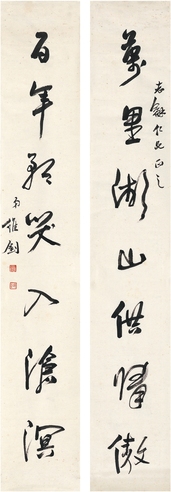 萬里湖山供嘯傲
百年歌哭入滄溟
志龢仁兄正之
弟雄劍